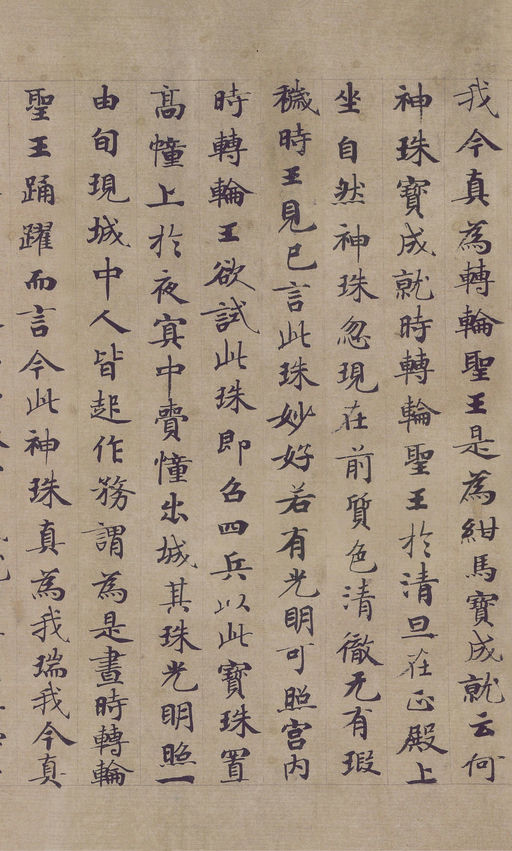 我今真為轉輪聖王是為紺馬寶成就云何
神珠寶成就時轉輪聖王於清旦在正殿上
坐自然神珠忽現在前質色清徹无有瑕
穢時王見已言此珠妙好若有光明可照宮内
時轉輪王欲試此珠即召四兵以此寶珠置
高幢上於夜寘中賷憧出城其珠光明照一
由旬現城中人皆起作務謂為是晝時轉輪
聖王踊躍而言今此神珠真為我瑞我今真